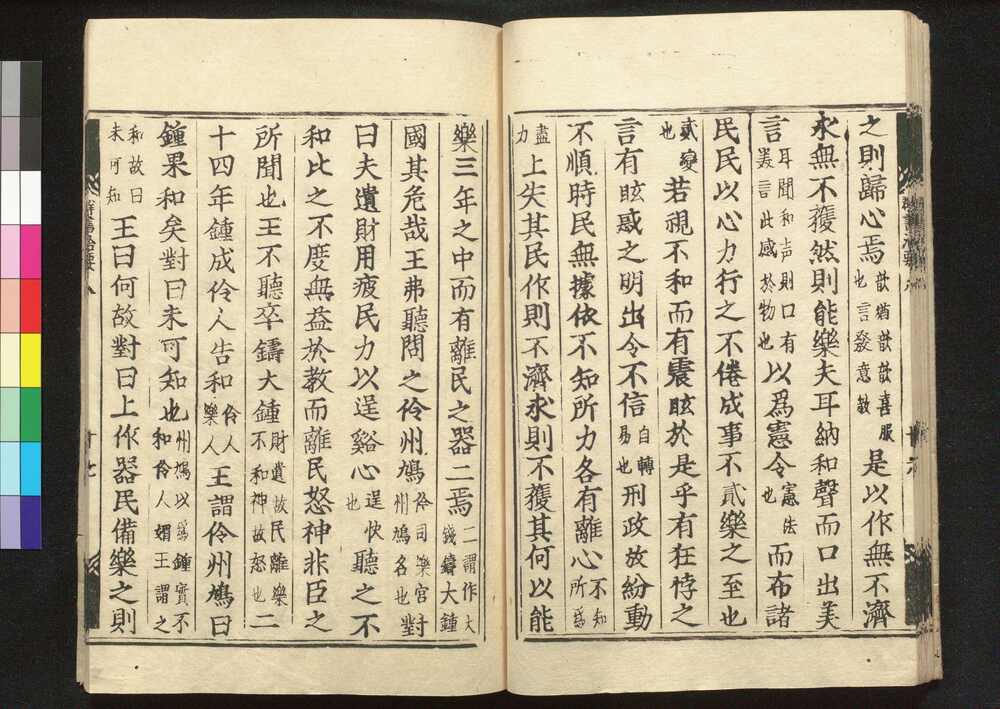 之則歸心焉歆猶歆歆喜服也言發意敎是以作無不濟
求無不獲然則能樂夫耳納和聲而口出美
言耳聞和声則口有美言此感於物也以爲憲令憲法也而布諸
民民以心力行之不倦成事不貳樂之至也
貳變也若視不和而有震眩於是乎有狂悖之
言有眩惑之明出令不信自轉易也刑政放紛動
不順時民無據依不知所力各有離心不知所爲
盡力上失其民作則不濟求則不獲其何以能
樂三年之中而有離民之器二焉二謂作大錢鑄大鍾
國其危哉王弗聽問之伶州鳩伶司樂官州鳩名也對
曰夫遺財用疲民力以逞谿心逞快也聽之不
和比之不度無益於教而離民怒神非臣之
所聞也王不聽卒鑄大鍾財遺故民離樂不和神故怒也二
十四年鍾成伶人告和伶人樂人王謂伶州鳩曰
鍾果和矣對曰未可知也州鳩以爲鍾實不和伶人媚王謂之
和故曰未可知王曰何故對曰上作器民備樂之則
群書治要八
十七